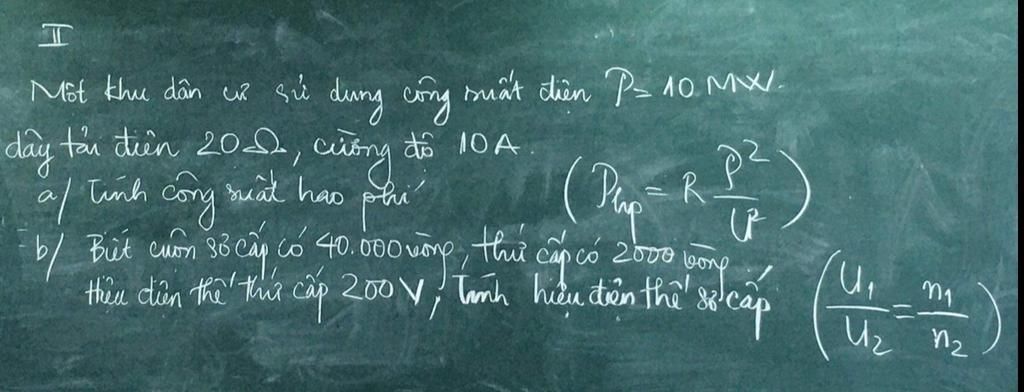 II
Một khu dân cư sử dụng công suất điện P = 10 MW.
dây tải điện 20Ω, cường độ 10A.
a/ Tính công suất hao phí (Php = R P²/U²)
b/ Biết cuộn sơ cấp có 40.000 vòng, thứ cấp có 2000 vòng
Hiệu điện thế thứ cấp 200V, Tính hiệu điện thế sơ cấp (U1/U2 = n1/n2)